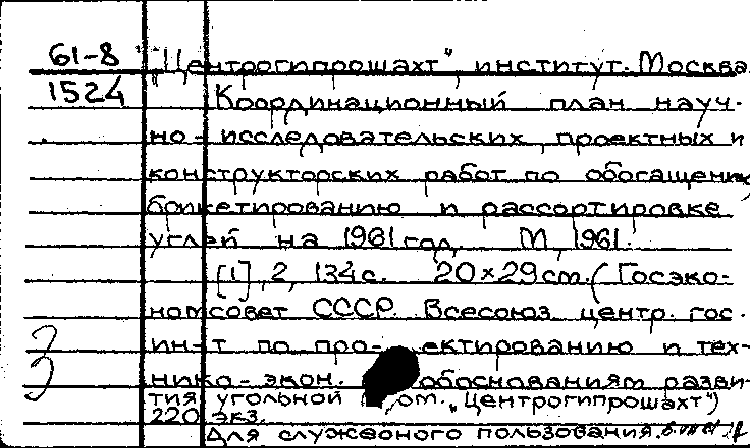 61-8 "Центрогипрошахт", институт. Москва.
1524 Координационный план науч-
но-исследовательских, проектных и
конструкторских работ по обогащению,
брикетированию и рассортировке
углей на 1961 год. М, 1961.
[1], 2, 134 с. 20×29 см. (Госэко-
номсовет СССР. Всесоюз. центр. гос.
ин-т по про- ектированию и тех-
нико-экон. обоснованиям разви-
тия угольной пром. „Центрогипрошахт")
220 экз.
Для служебного пользования.
3